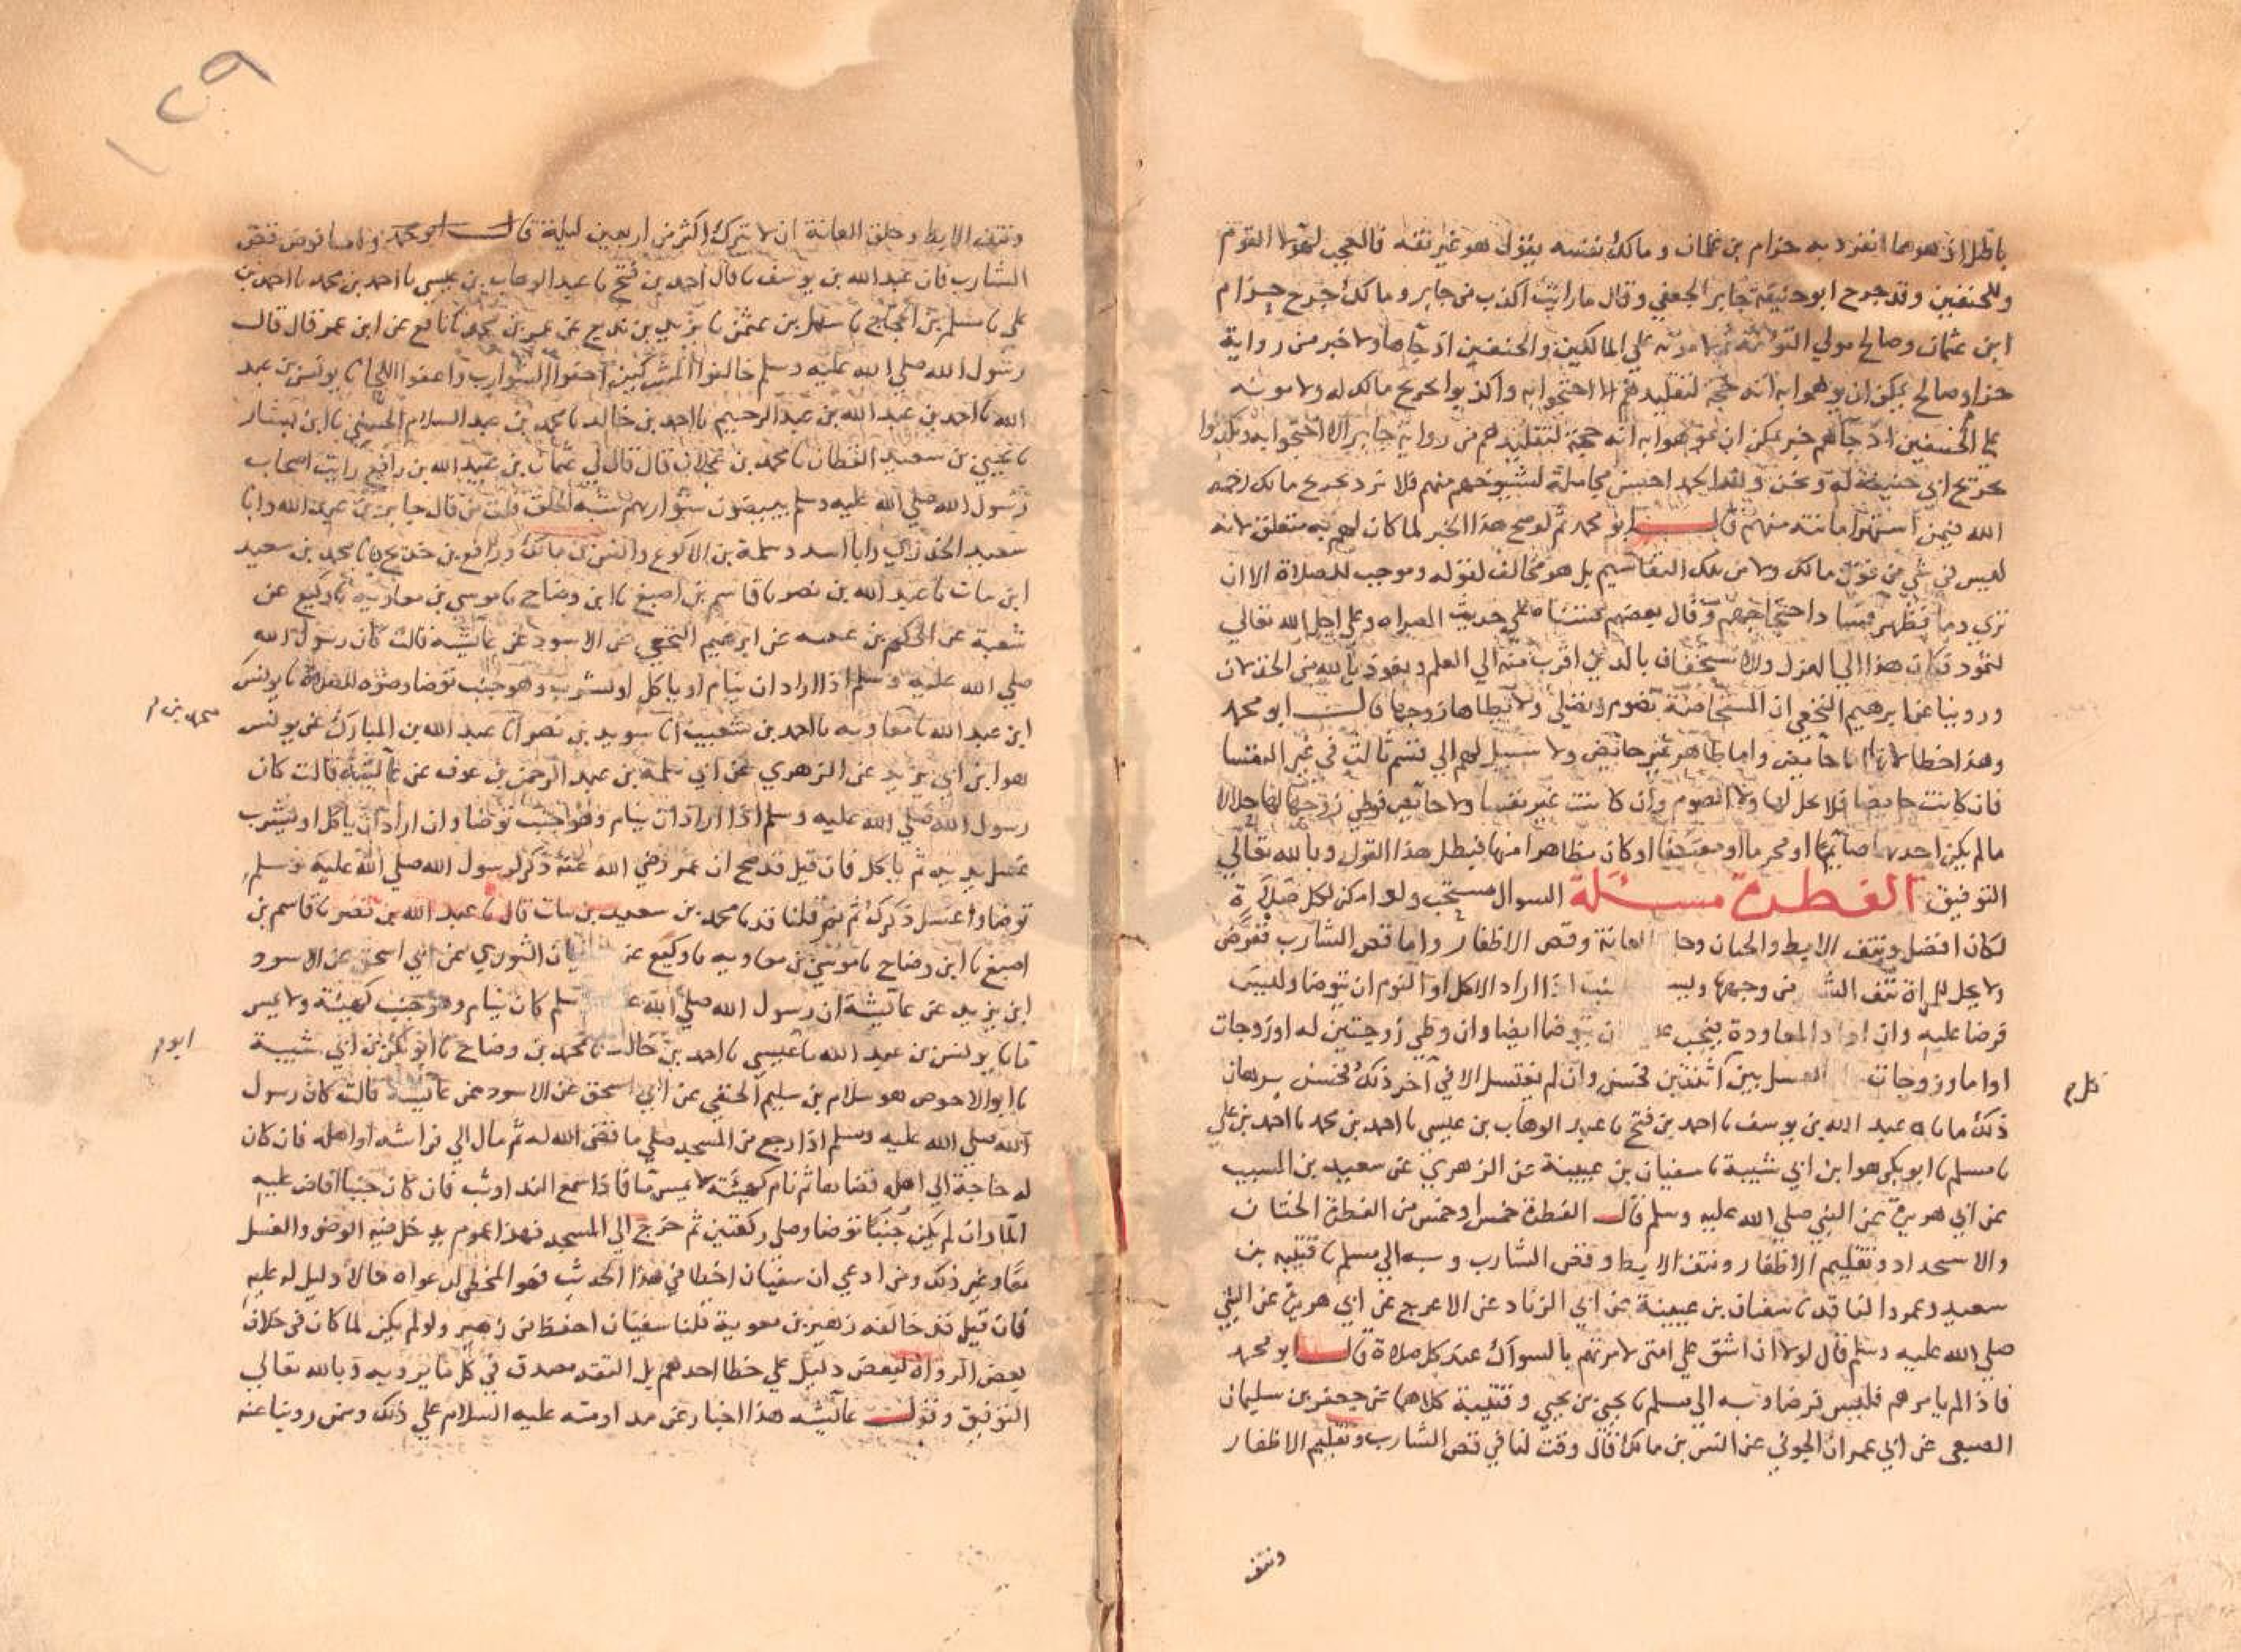 باطل اذ هو مما انفرد به حزام بن عثمان ومالك نفسه يقول هو غير ثقة فالعجب لهولا القوم
وللحنفيين وقد جرح ابو حنيفة جابر الجعفي وقال ما رايت اكذب من جابر ومالك جرح حزام
ابن عثمان وصالح مولي التومة على المالكيين والحنفيين اذ جاهما ولا خبر من رواية
حزام وصالح يمكن ان يوهموا به انه حجة لتقليدهم الا احتجوا به واكذبوا تجريح مالك له ولا مونه
على الحنفيين اذ جاهم خبر يمكن ان يموهوا به انه حجة لتقليدهم من رواية جابر الا احتجوا به وكذبوا
تجريح ابي حنيفة له ونحن ولله الحمد احسن مجاملة لشيوخهم منهم فلا نرد تجريح مالك رحمه
الله فيمن اشتهرت امانته منهم قال ابو محمد ثم لو صح هذا الخبر لما كان لهم به متعلق لانه
ليس في شي من قول مالك ولا من تلك التقاسيم بل هو مخالف لقوله وموجب للصلاة الا ان
تري دما فتطهر فيها احتجاجهم وقال بعضهم قسناه على حديث المصراه وعلى اجل الله تعالي
لثمود فكان هذا الي الهزل والاستخفاف بالدين اقرب منه الي العلم ونعوذ بالله من الخذلان
وروينا عن ابرهيم النخعي ان المستحاضة تصوم وتصلي ولا يطاها زوجها قال ابو محمد
وهذا خطا لانها اما حايض واما طاهر غير حايض ولا سبيل لهم الي قسم ثالث في غير النفسا
فان كانت حايضا فلا تحل لها ولا الصوم وان كانت غير نفسا ولا حايض فوطي زوجها لها حلال
ما لم يكن احدهما صائما او محرما او معتكفا او كان مظاهرا منها فبطل هذا القول وبالله تعالي
التوفيق الفطرة مسئلة السواك مستحب ولو امكن لكل صلاة
لكان افضل ونتف الابط والختان وحلق العانة وقص الاظفار واما قص الشارب ففرض
ولا يحل للمراة نتف الشعر من وجهها اذا اراد الاكل او النوم ان يتوضا وليس
فرضا عليه وان اراد المعاودة ان يتوضا ايضا وان وطي زوجتين له او زوجات
او اما وزوجات الغسل بين اثنتين فحسن وان لم يغتسل الا في اخر ذلك فحسن برهان
ذلك ما ناه عبد الله بن يوسف نا احمد بن فتح نا عبد الوهاب بن عيسي نا احمد بن محمد نا احمد بن علي
نا مسلم نا ابو بكر هو ابن ابي شيبة نا سفيان بن عيينة عن الزهري عن سعيد بن المسيب
عن ابي هريرة عن النبي صلي الله عليه وسلم قال الفطرة خمس او خمس من الفطرة الختان
والاستحداد وتقليم الاظفار ونتف الابط وقص الشارب وبه الي مسلم نا قتيبة بن
سعيد وعمرو الناقد نا سفيان بن عيينة عن ابي الزناد عن الاعرج عن ابي هريرة عن النبي
صلي الله عليه وسلم قال لولا ان اشق على امتى لامرتهم بالسواك عند كل صلاة قال ابو محمد
فاذ لم يامرهم فليس فرضا وبه الي مسلم نا يحيي بن يحيي وقتيبة كلاهما عن جعفر بن سليمان
الضبعي عن ابي عمران الجوني عن انس بن مالك قال وقت لنا في قص الشارب وتقليم الاظفار
ونتف
١٢٩
ونتف الابط وحلق العانة ان لا نترك اكثر من اربعين ليلة قال ابو محمد واما فرض قص
الشارب فان عبد الله بن يوسف نا قال احمد بن فتح نا عبد الوهاب بن عيسي نا احمد بن محمد نا احمد بن
علي نا مسلم بن الحجاج نا سهل بن عثمن نا يزيد بن زريع عن عمر بن محمد نا نافع عن ابن عمر قال قال
رسول الله صلي الله عليه وسلم خالفوا المشركين احفوا الشوارب واعفوا اللحا نا يونس بن عبد
الله نا احمد بن عبد الله بن عبد الرحيم نا احمد بن خالد نا محمد بن عبد السلام الخشني نا ابن بشار
نا يحيي بن سعيد القطان نا محمد بن عجلان قال قال لي عثمان بن عبيد الله بن رافع رايت اصحاب
رسول الله صلي الله عليه وسلم يبيضون شواربهم شبه الحلق قلت من قال جابر بن عبد الله وابا
سعيد الخدري وابا اسيد وسلمة بن الاكوع وانس بن مالك ورافع بن خديج نا محمد بن سعيد
ابن بنات نا عبد الله بن نصر نا قاسم بن اصبغ نا ابن وضاح نا موسي بن معاوية نا وكيع عن
شعبة عن الحكم بن عتيبة عن ابرهيم النخعي عن الاسود عن عائشة قالت كان رسول الله
صلي الله عليه وسلم اذا اراد ان ينام او ياكل او يشرب وهو جنب توضا وضوه للصلاة نا يونس
ابن عبد الله نا معاوية نا احمد بن شعيب انا سويد بن نصر انا عبد الله بن المبارك عن يونس
محمد بن م
هو ابن ابي يزيد عن الزهري عن ابي سلمة بن عبد الرحمن بن عوف عن عائشة قالت كان
رسول الله صلي الله عليه وسلم اذا اراد ان ينام وهو جنب توضا وان اراد ان ياكل او يشرب
غسل يديه ثم ياكل فان قيل قد صح ان عمر رضي الله عنه ذكر لرسول الله صلي الله عليه وسلم
توضا واغسل ذكرك ثم نم قلنا قد نا محمد بن سعيد بن بنات قال نا عبد الله بن نصر نا قاسم بن
اصبغ نا ابن وضاح نا موسي بن معاوية نا وكيع عن سفيان الثوري عن ابي اسحق عن الاسود
ابن يزيد عن عائشة ان رسول الله صلي الله عليه وسلم كان ينام وهو جنب كهيئة ولا يمس
ما نا يونس بن عبد الله نا عيسي نا احمد بن خالد نا محمد بن وضاح نا ابو بكر بن ابي شيبة
ابو م
نا ابو الاحوص هو سلام بن سليم الحنفي عن ابي اسحق عن الاسود عن عائشة قالت كان رسول
الله صلي الله عليه وسلم اذا رجع من المسجد صلي ما قضى الله له ثم مال الي فراشه او اهله فان كان
له حاجة الي اهله قضاها ثم نام كهيئته لا يمس ما فاذا سمع الندا وثب فان كان جنبا افاض عليه
الما وان لم يكن جنبا توضا وصلي ركعتين ثم خرج الي المسجد فهذا عموم يدخل فيه الوضو والغسل
معا وغير ذلك ومن ادعي ان سفيان اخطا في هذا الحديث فهو المخطي لدعواه ما لا دليل له عليه
فان قيل قد خالفه زهير بن معوية قلنا سفيان احفظ من زهير ولو لم يكن لما كان في خلاف
بعض الرواة لبعض دليل على خطا احدهم بل الثقة مصدق في كل ما يرويه وبالله تعالي
التوفيق وقول عائشة هذا اخبار عن مداومته عليه السلام علي ذلك وممن روينا عنه